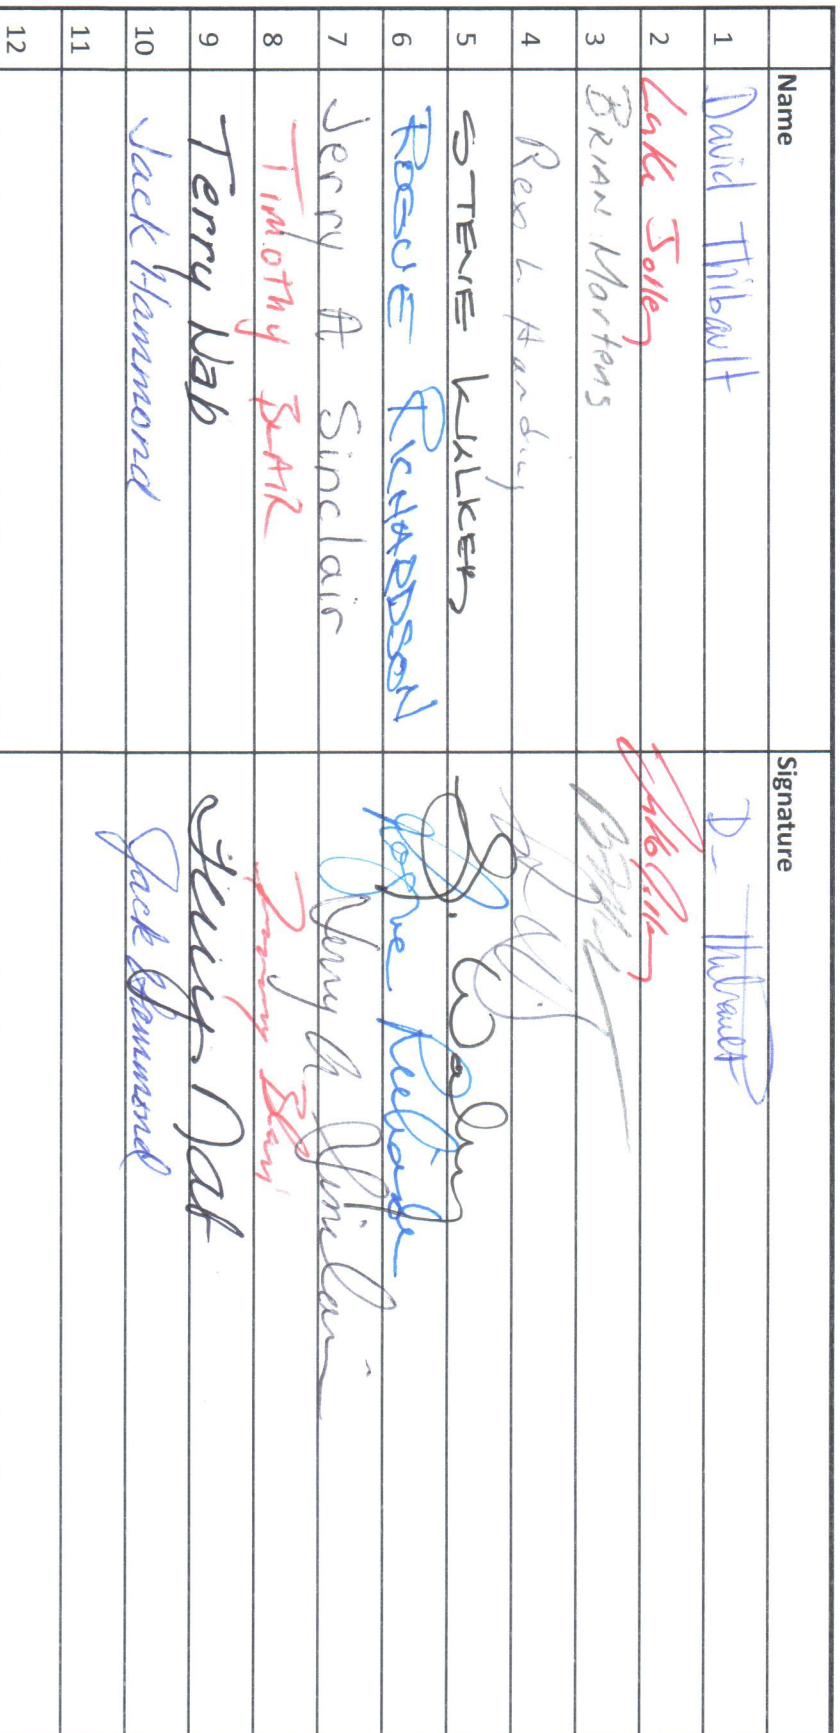 Name Signature
1 David Thibault D_ Thibault
2 Luke
3 BRIAN Martens
4 Rex L. Harding
5 STEVE WALKER S. Walker
6 ROGUE RICHARDSON Rogue
7 Jerry A Sinclair Jerry A Sinclair
8 TIMOTHY BLAIR Timothy Blair
9 Terry Nab Terry Nab
10 Jack Hammond Jack Hammond
11
12